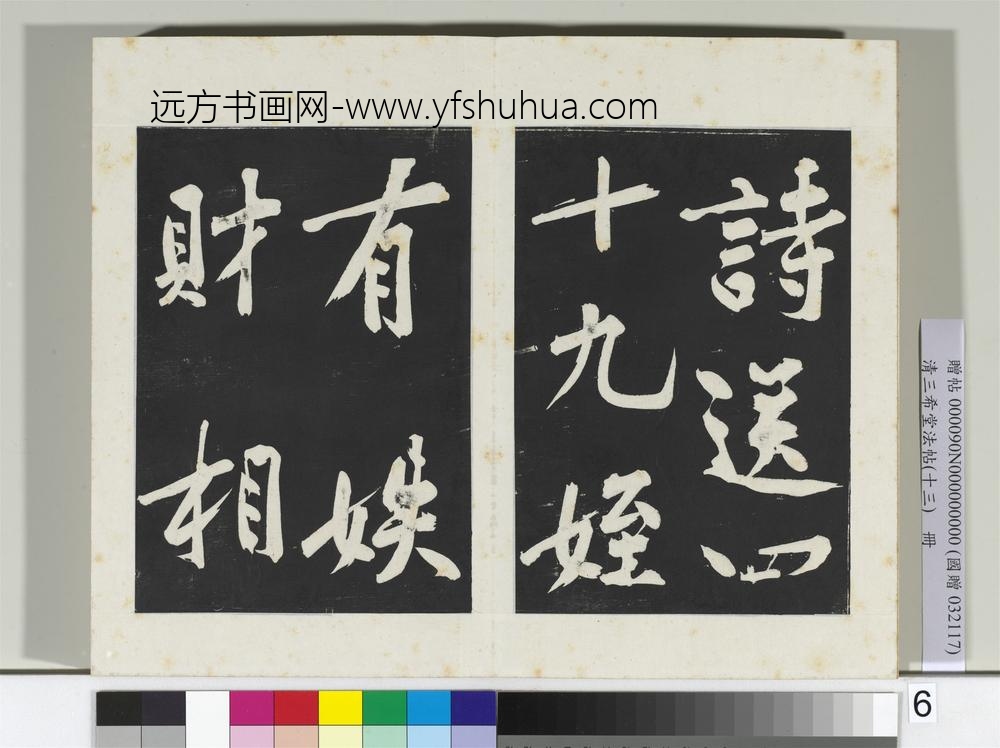 远方书画网-www.yfshuhua.com
詩送四
十九姪
有
財相
贈帖 000090N000000000 (國贈 032117)
清三希堂法帖(十三) 冊
6